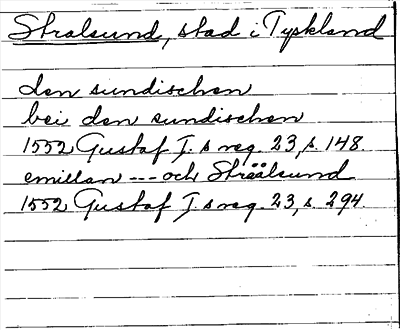 Stralsund, stad i Tyskland
den sundischen
bei den sundischen
1552 Gustaf I:s reg. 23, s. 148.
emillan --- och Sträälsund
1552 Gustaf I:s reg. 23, s. 294.